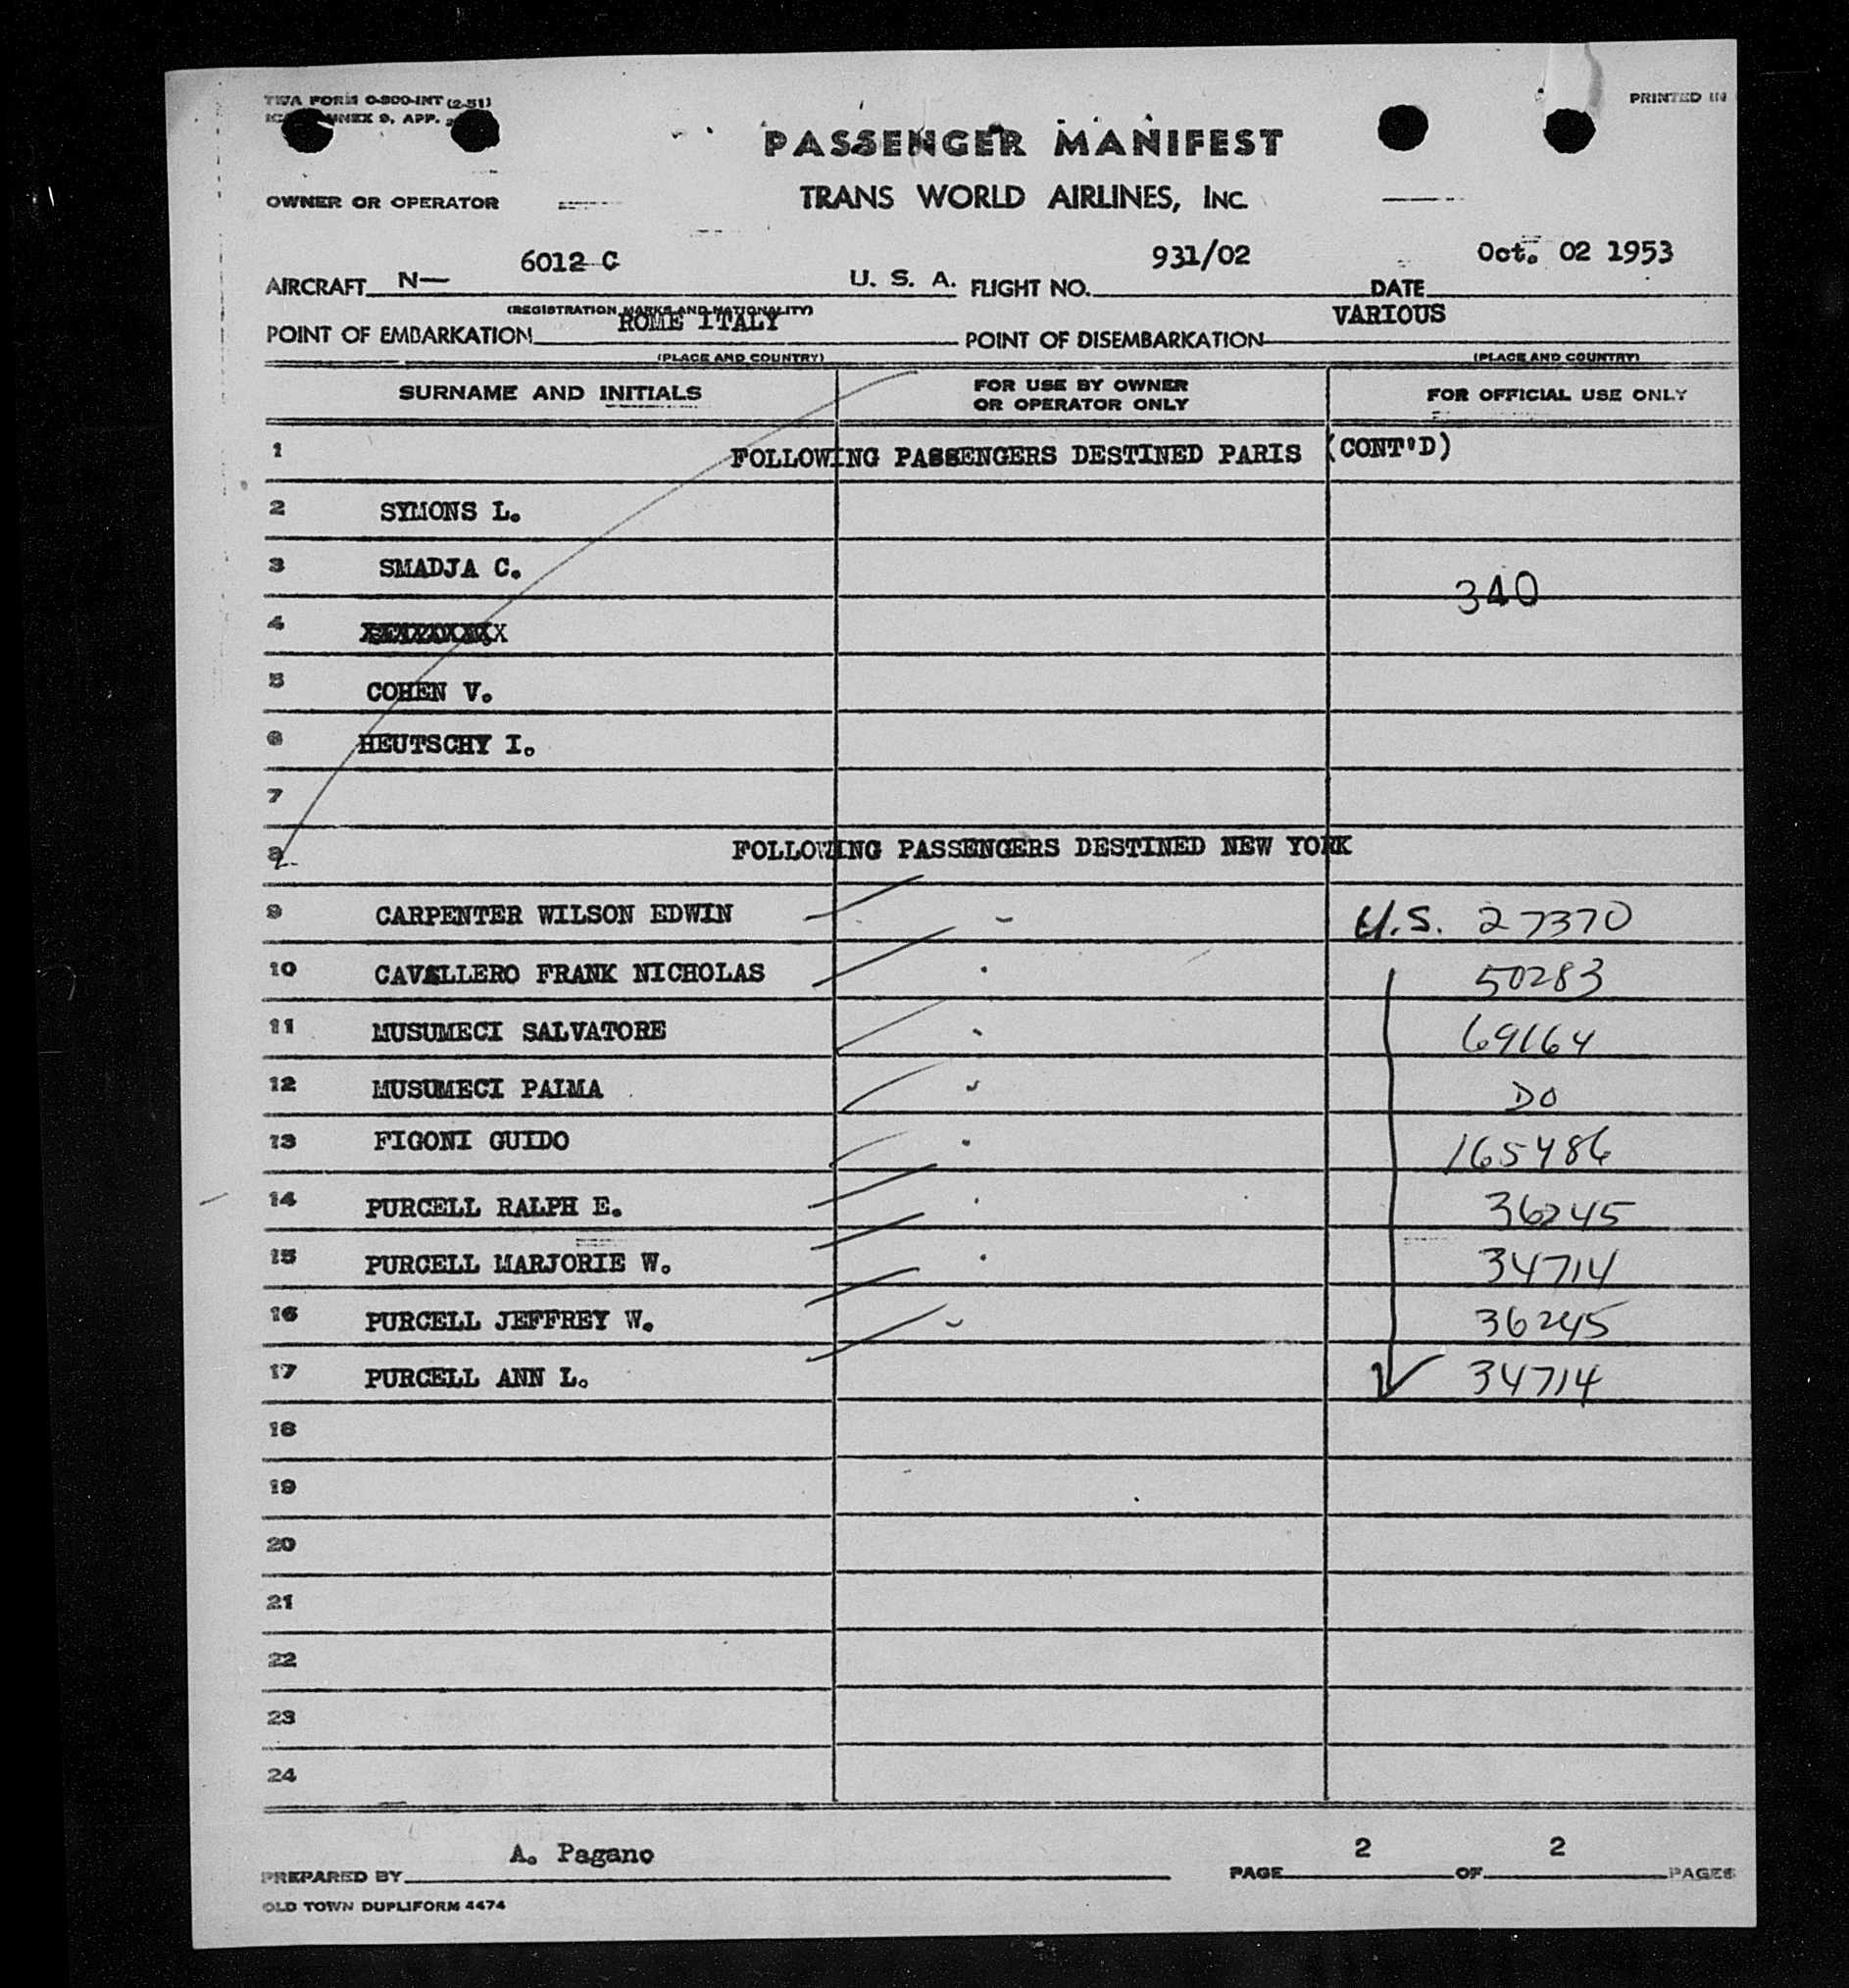 TWA FORM O-800-INT (2-51)
ANNEX 9, APP.
PRINTED IN
PASSENGER MANIFEST
OWNER OR OPERATOR TRANS WORLD AIRLINES, INC.
AIRCRAFT N— 6012 C U. S. A. FLIGHT NO. 931/02 DATE Oct. 02 1953
(REGISTRATION MARKS AND NATIONALITY)
POINT OF EMBARKATION ROME ITALY POINT OF DISEMBARKATION VARIOUS
(PLACE AND COUNTRY) (PLACE AND COUNTRY)
SURNAME AND INITIALS FOR USE BY OWNER OR OPERATOR ONLY FOR OFFICIAL USE ONLY
1 FOLLOWING PASSENGERS DESTINED PARIS (CONT'D)
2 SYMONS L.
3 SMADJA C.
340
4
5 COHEN V.
6 HEUTSCHY I.
7
8 FOLLOWING PASSENGERS DESTINED NEW YORK
9 CARPENTER WILSON EDWIN U.S. 27370
10 CAVALLERO FRANK NICHOLAS 50283
11 MUSUMECI SALVATORE 69164
12 MUSUMECI PAIMA DO
13 FIGONI GUIDO 165486
14 PURCELL RALPH E. 36245
15 PURCELL MARJORIE W. 34714
16 PURCELL JEFFREY W. 36245
17 PURCELL ANN L. 34714
18
19
20
21
22
23
24
PREPARED BY A. Pagano PAGE 2 OF 2 PAGES
OLD TOWN DUPLIFORM 4474